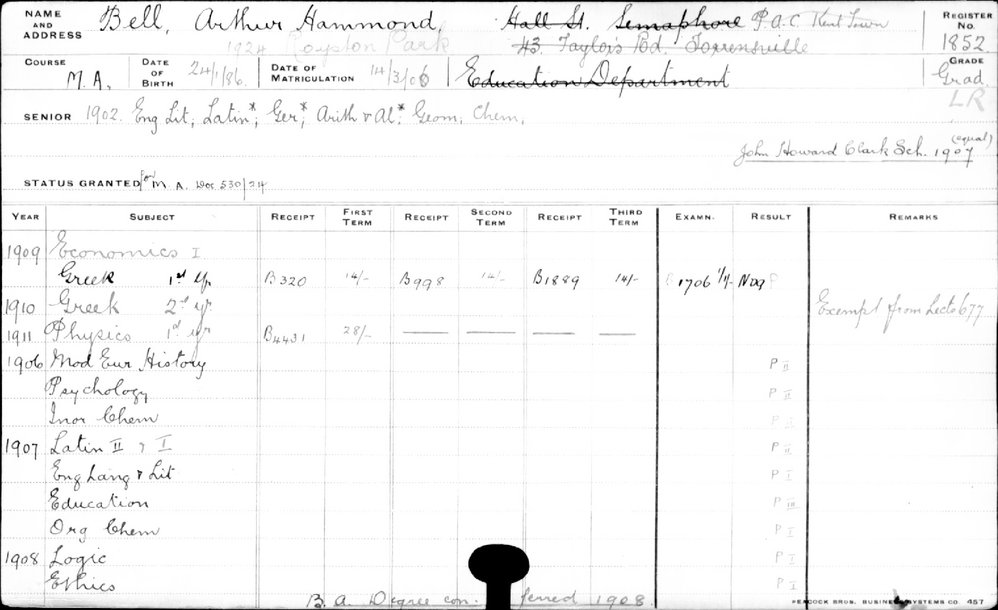 NAME AND ADDRESS Bell, Arthur Hammond, Hall St. Semaphore P.A.C Kent Town REGISTER NO. 1852
1924 Royston Park 43 Taylors Rd. Torrensville
COURSE M.A. DATE OF BIRTH 24/1/86. DATE OF MATRICULATION 14/3/06 Education Department GRADE Grad.
LR
SENIOR 1902. Eng Lit, Latin*, Ger*, Arith & Al*. Geom, Chem,
John Howard Clark Sch. 1907 (equal)
STATUS GRANTED for M A. Doc 530/24
YEAR SUBJECT RECEIPT FIRST TERM RECEIPT SECOND TERM RECEIPT THIRD TERM EXAMN. RESULT REMARKS
1909 Economics I
Greek 1st yr B320 14/- B998 14/- B1889 14/- 1706 1/1/- Nog P
1910 Greek 2d yr Exempt from Lects 677
1911 Physics 1st yr B4431 28/- — — — —
1906 Mod Eur History P II
Psychology P II
Inor Chem P I
1907 Latin II & I P II
Eng Lang & Lit P I
Education P III
Org Chem P I
1908 Logic P I
Ethics P I
B. A. Degree conferred 1908
PEACOCK BROS. BUSINESS SYSTEMS CO 457